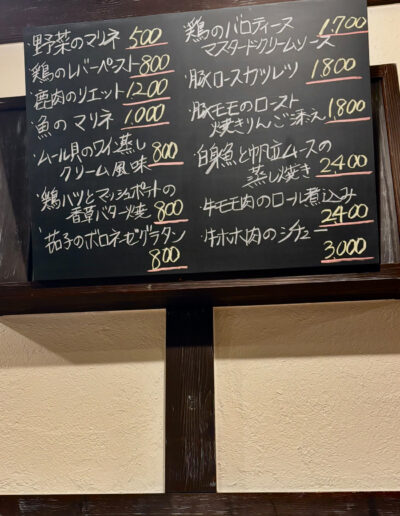 野菜のマリネ 500
鶏のレバーペースト 800
鹿肉のリエット 1200
魚のマリネ 1000
ムール貝のワイン蒸し
クリーム風味 800
鶏ハツとマッシュポテトの
香草バター焼 800
茄子のボロネーゼグラタン
800
鶏のバロティーヌ 1,700
マスタードクリームソース
豚ロースカツレツ 1.800
豚モモのロースト
焼きりんご添え 1,800
白身魚と帆立ムースの
蒸し焼き 2,400
牛モモ肉のロール煮込み
2400
牛ホホ肉のシチュー
3,000